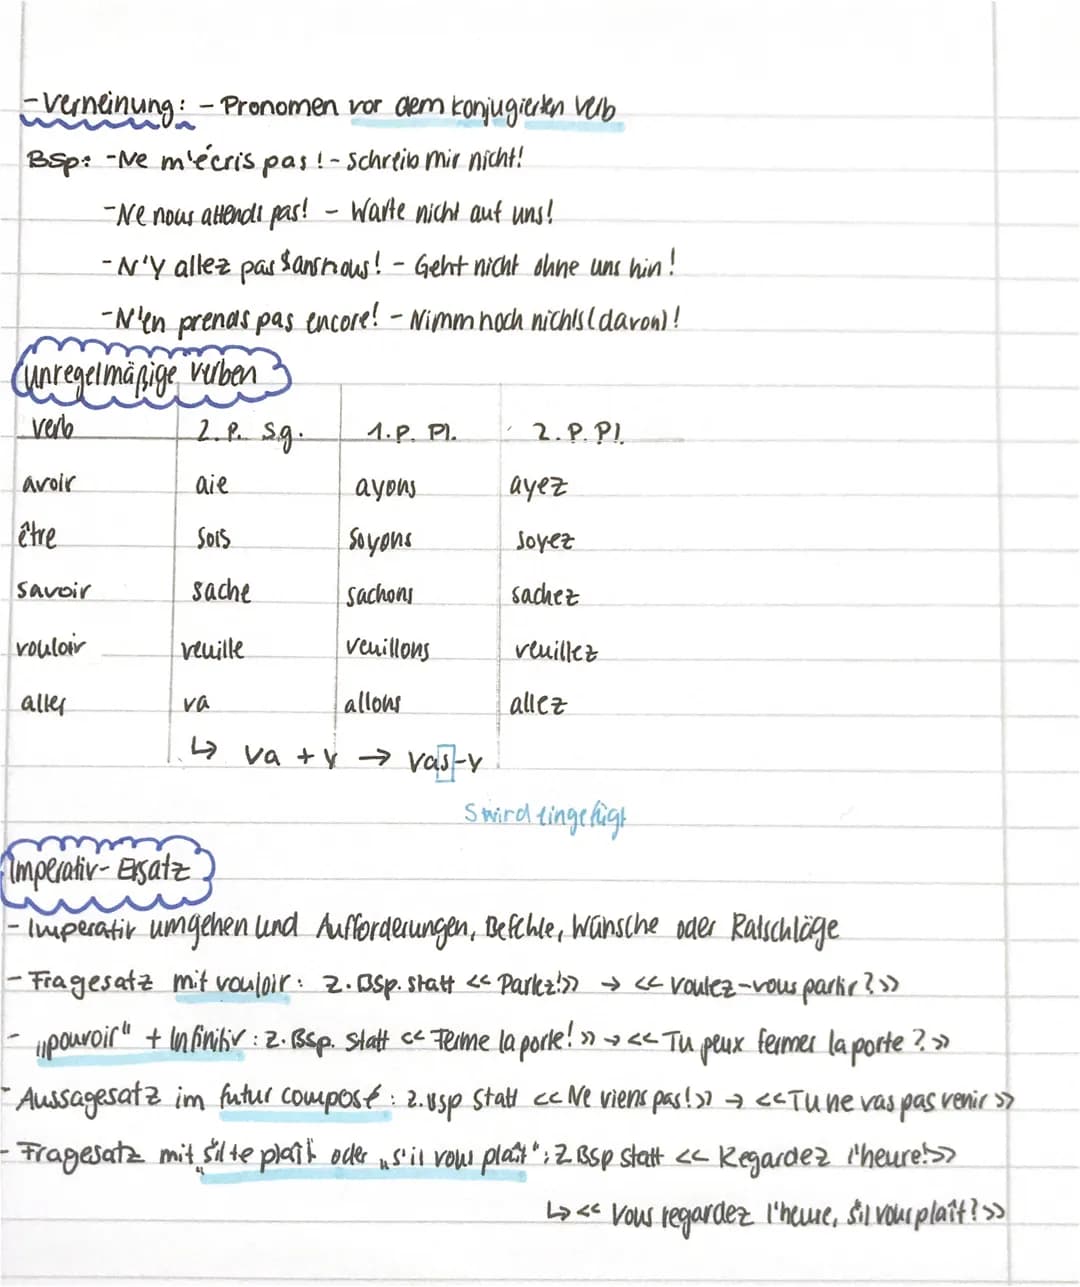 - Verneinung: - Pronomen vor dem konjugierten Verb
BSp: -Ne m'écris pas! - schreib mir nicht!
-Ne nous attends pas! - Warte nicht auf uns!
-N'Y allez pas sans nous! - Geht nicht ohne uns hin!
-N'en prends pas encore! - Nimm noch nichts (davon)!
Unregelmäßige Verben
verb 2. P. Sg. 1. P. Pl. 2. P. Pl.
avoir aie ayons ayez
être sois soyons soyez
savoir sache sachons sachez
vouloir veuille veuillons veuillez
aller va allons allez
↳ va + y → vas-y
S wird eingefügt
Imperativ-Ersatz
- Imperativ umgehen und Aufforderungen, Befehle, Wünsche oder Ratschläge
- Fragesatz mit vouloir: z. BSp. statt << Partez!>> → << voulez-vous partir?>>
- „pouvoir" + Infinitiv: z. BSp. statt << Ferme la porte!>> → << Tu peux fermer la porte?>>
- Aussagesatz im futur composé: z. Bsp statt << Ne viens pas!>> → << Tu ne vas pas venir>>
- Fragesatz mit „s'il te plaît oder „s'il vous plaît": z BSp statt << Regardez l'heure!>>
↳ << Vous regardez l'heure, s'il vous plaît?>>